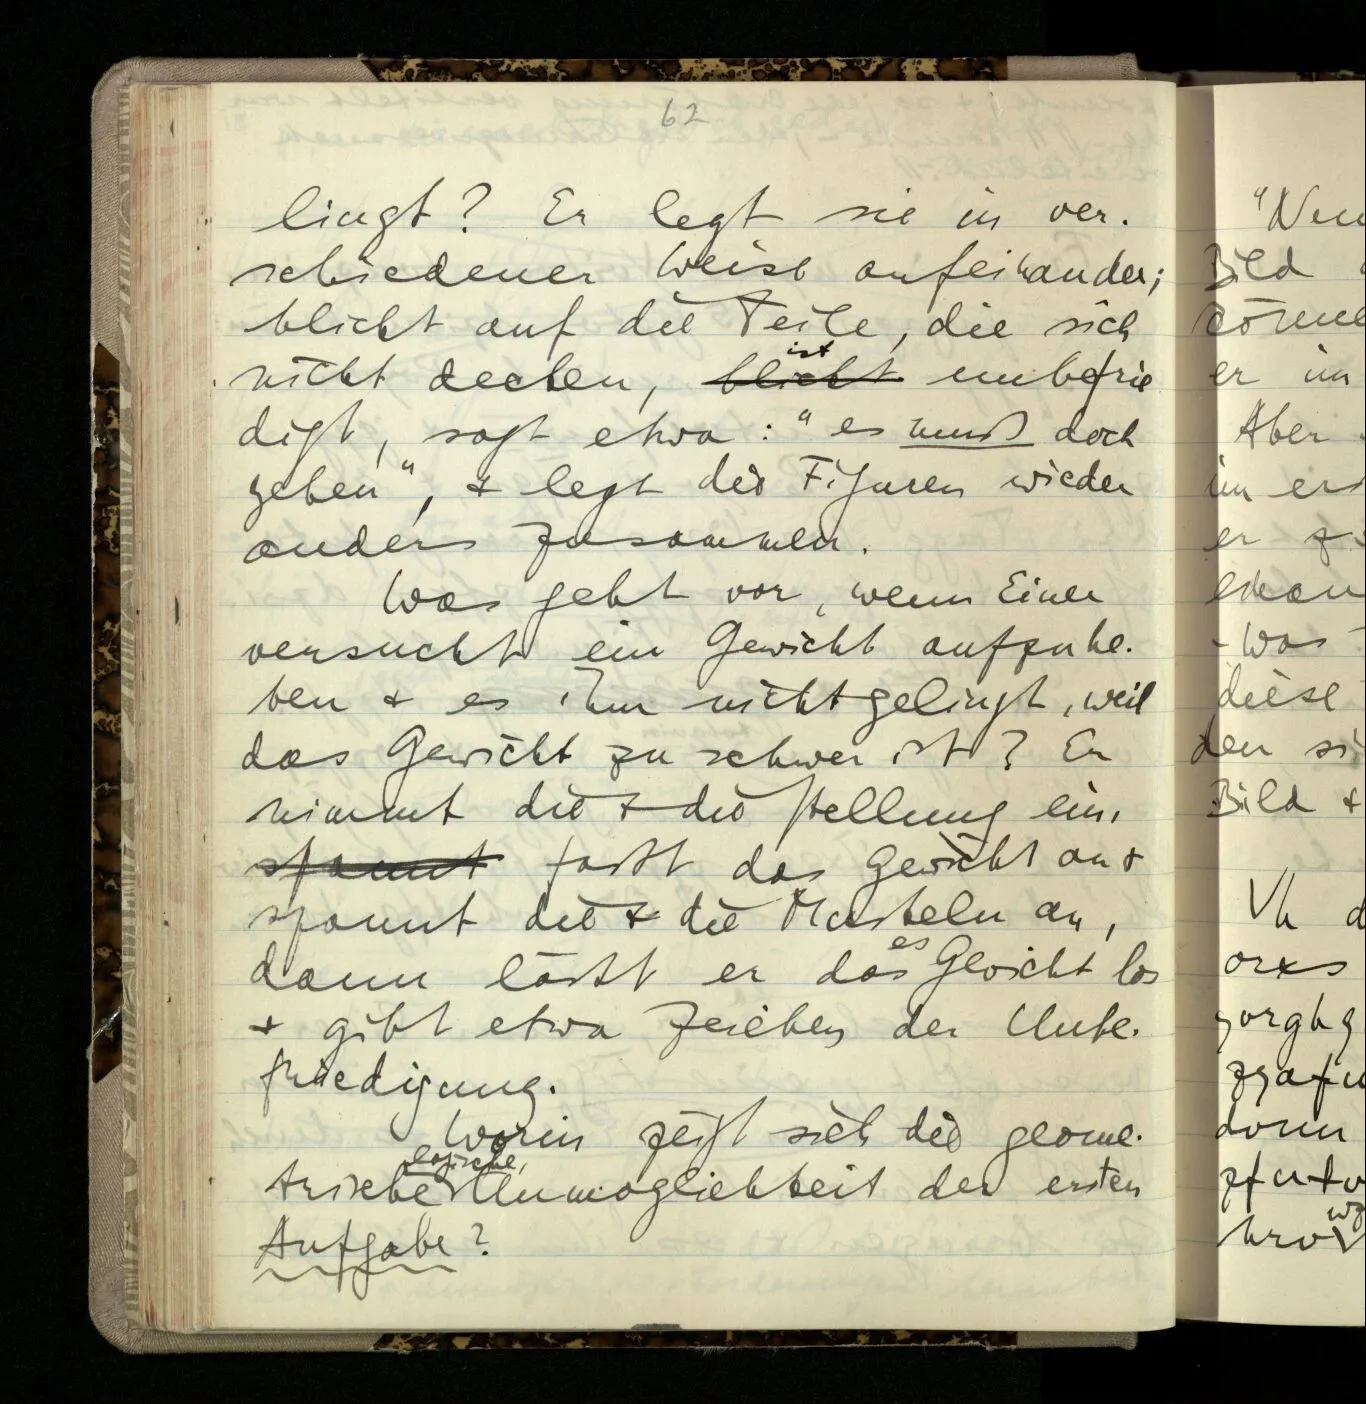 62
lingt? Er legt sie in ver-
schiedener Weise aufeinander;
blickt auf die Teile, die sich
nicht decken, blickt ist unbefrie
digt, sagt etwa: "es muß doch
gehen", & legt die Figuren wieder
anders zusammen.
Was geht vor, wenn Einer
versucht ein Gewicht aufzuhe-
ben & es ihm nicht gelingt, weil
das Gewicht zu schwer ist? Er
nimmt die & die Stellung ein,
spannt faßt das Gewicht an &
spannt die & die Muskeln an,
dann läßt er das es Gewicht los
& gibt etwa Zeichen der Unbe-
friedigung.
Worin zeigt sich die geome-
trische, logische, Unmöglichkeit der ersten
Aufgabe?
"Nun
Bild
könne
er im
Aber
im ers
er z
-Was
diese
den si
Bild &
Vh d
orxs